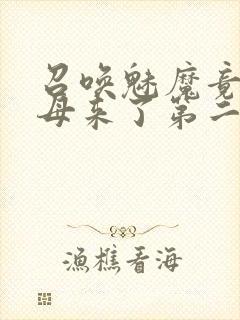 召唤魅魔竟
母来了第二
渔樵看海